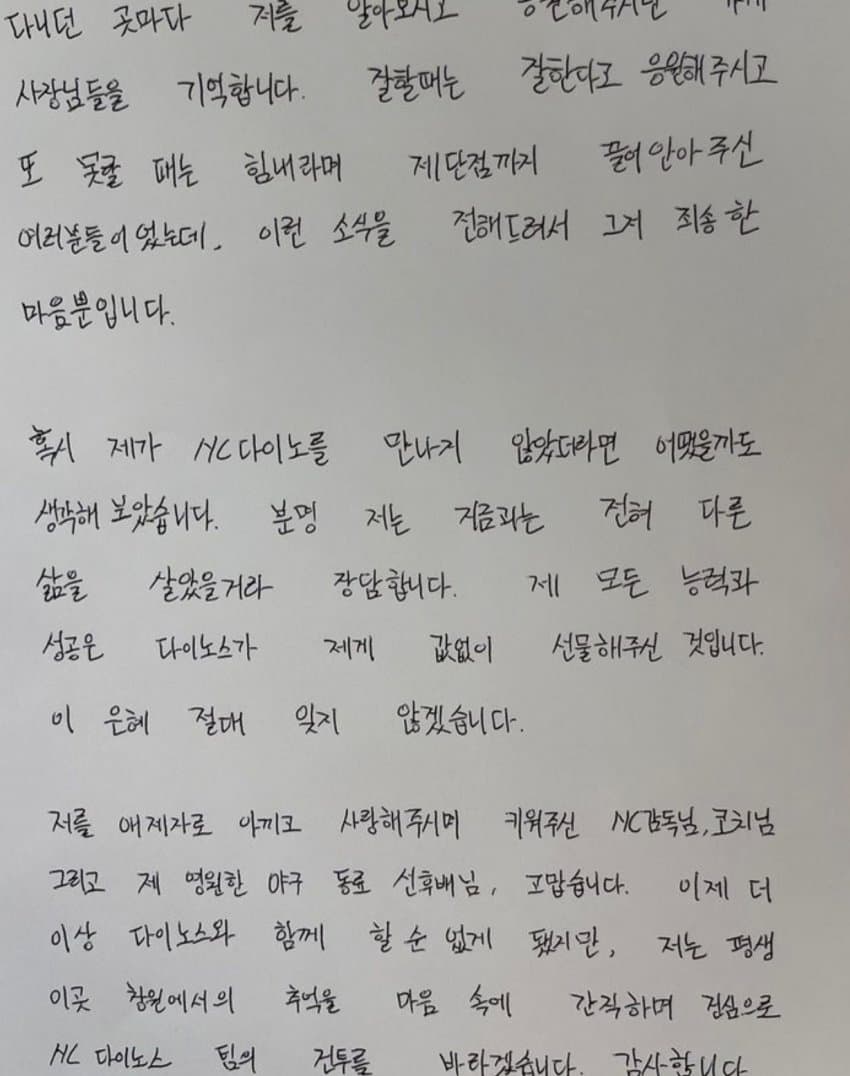 다니던 곳마다 저를 알아보시고 응원해주시던 가게
사장님들을 기억합니다. 잘할때는 잘한다고 응원해주시고
또 못할 때는 힘내라며 제단점까지 끌어안아주신
여러분들이었는데, 이런 소식을 전해드려서 그저 죄송한
마음뿐입니다.
혹시 제가 NC다이노를 만나지 않았더라면 어땠을까도
생각해 보았습니다. 분명 저는 지금과는 전혀 다른
삶을 살았을거라 장담합니다. 제 모든 능력과
성공은 다이노스가 제게 값없이 선물해주신 것입니다.
이 은혜 절대 잊지 않겠습니다.
저를 애제자로 아끼고 사랑해주시며 키워주신 NC감독님, 코치님
그리고 제 영원한 야구 동료 선후배님, 고맙습니다. 이제 더
이상 다이노스와 함께 할 순 없게 됐지만, 저는 평생
이곳 창원에서의 추억을 마음 속에 간직하며 진심으로
NC 다이노스 팀의 건투를 바라겠습니다. 감사합니다